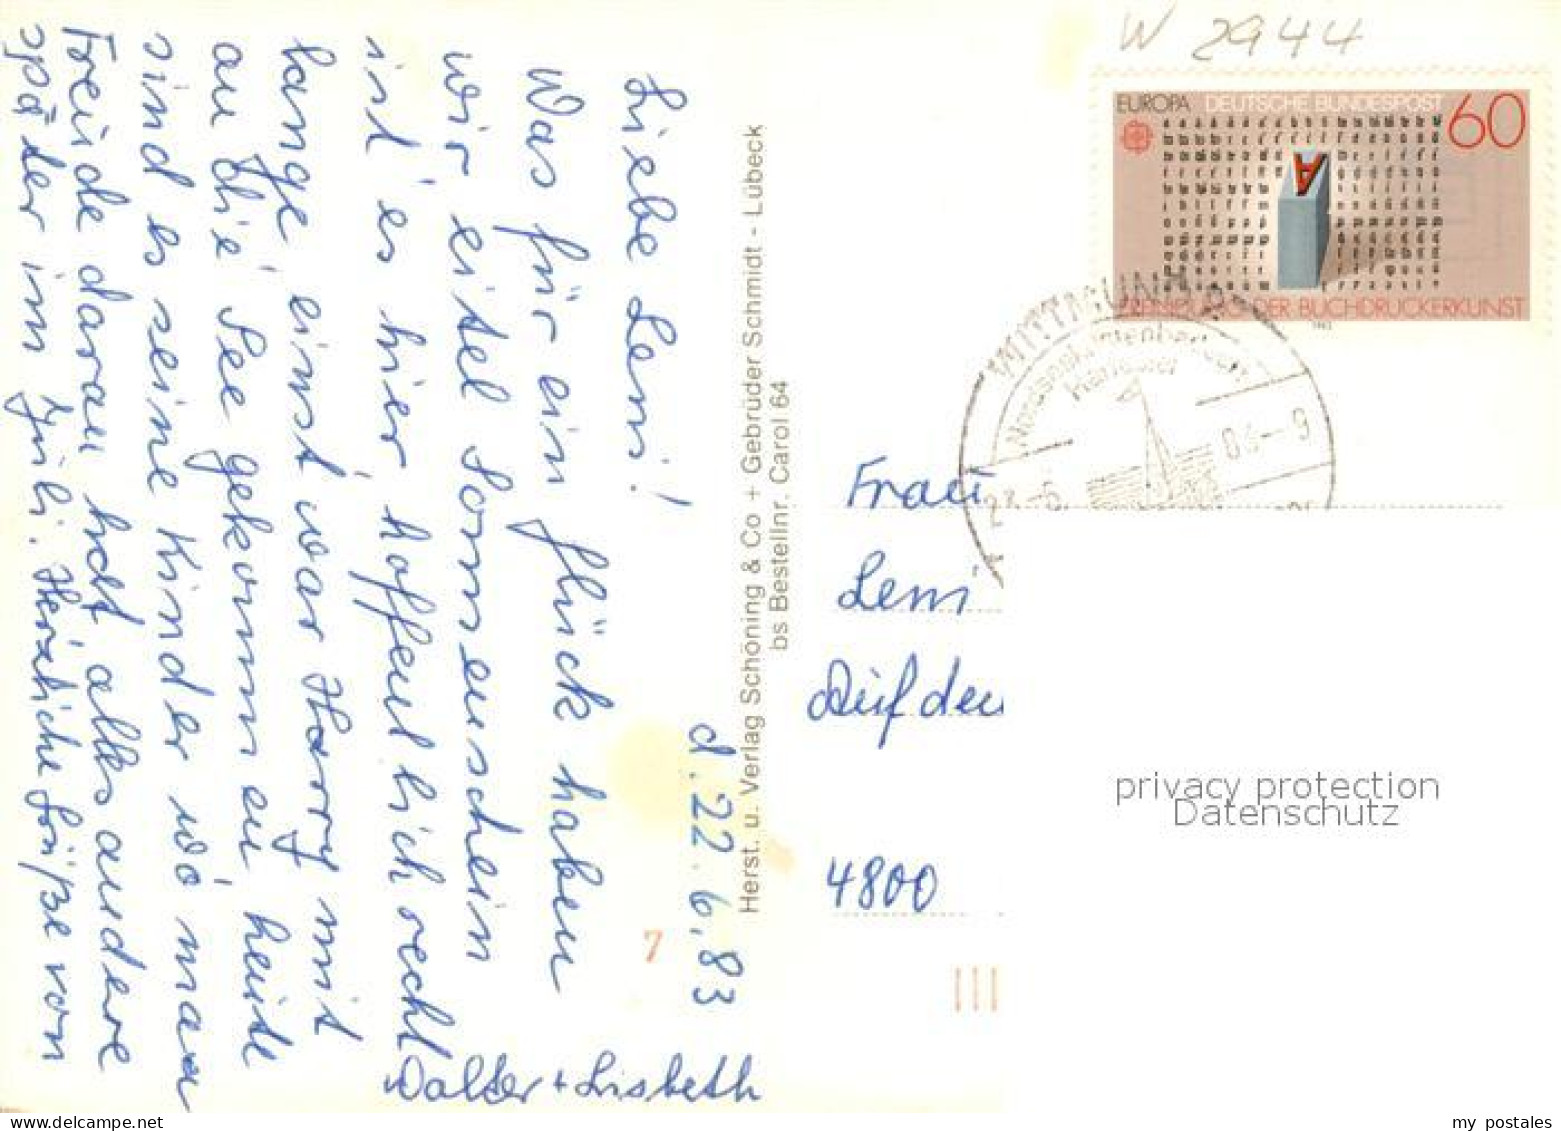 d. 22.6.83
Liebe Leni!
Was für ein Glück haben
wir eitel Sonnenschein
ist es hier hoffentlich recht
lange einst war Harry mit
an die See gekommen heute
sind es seine Kinder wo man
Freude daran hat alles andere
später im Juli. Herzliche Grüße von
Walter + Lisbeth
Herst. u. Verlag Schöning & Co + Gebrüder Schmidt - Lübeck
bs Bestellnr. Carol 64
7
W 2944
EUROPA DEUTSCHE BUNDESPOST 60
A
DER BUCHDRUCKERKUNST
WITTMUND
Frau
Leni
Auf den
4800
privacy protection
Datenschutz
my postales